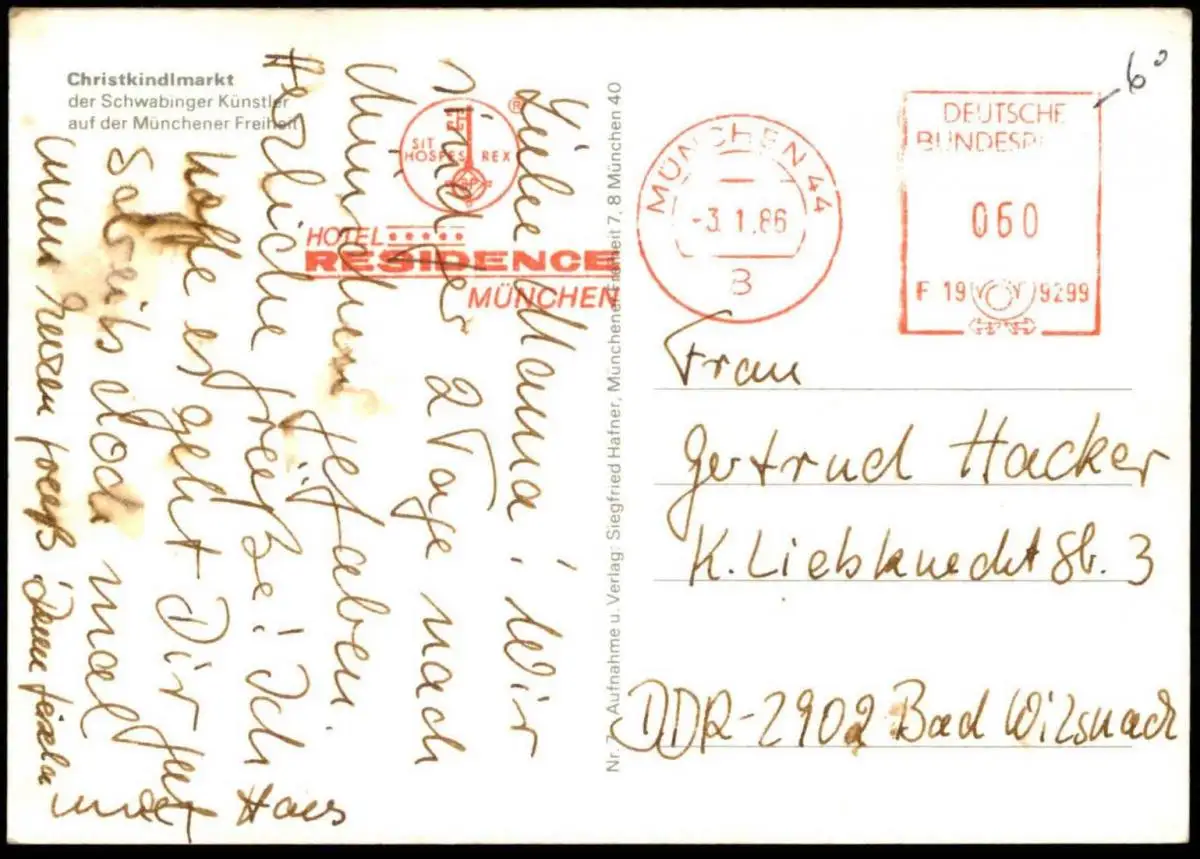 Christkindlmarkt
der Schwabinger Künstler
auf der Münchener Freiheit
SIT
HOSPES REX
®
HOTEL
RESIDENCE
MÜNCHEN
Liebe Mama! Wir
sind für 2 Tage nach
München gefahren.
Herzliche Grüße! Ich
hoffe es geht Dir gut
Schreib doch mal
unser Haus
Nr. 7 Aufnahme u. Verlag: Siegfried Hafner, Münchener Freiheit 7, 8 München 40
MÜNCHEN 44
-3.1.86
8
DEUTSCHE
BUNDESP
060
F 19 9299
60
Frau
Gertrud Hacker
K. Liebknecht Str. 3
DDR-2902 Bad Wilsnack